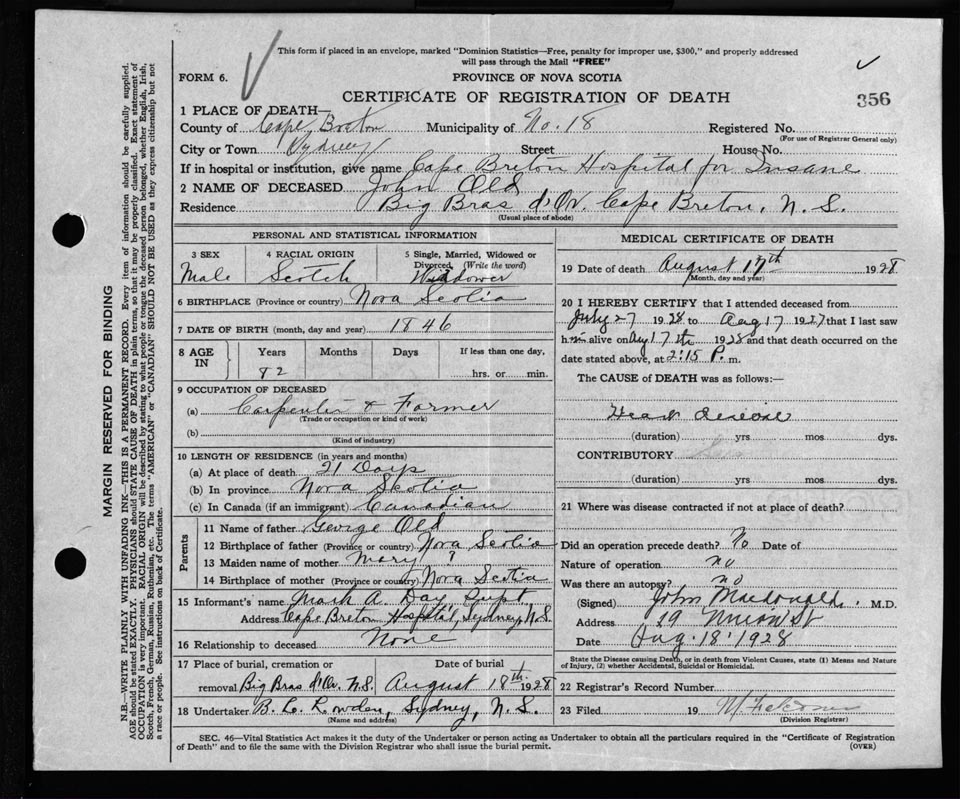 This form if placed in an envelope, marked "Dominion Statistics—Free, penalty for improper use, $300," and properly addressed
will pass through the Mail "FREE"
FORM 6.
PROVINCE OF NOVA SCOTIA
CERTIFICATE OF REGISTRATION OF DEATH
356
1 PLACE OF DEATH—
County of Cape Breton Municipality of No. 18 Registered No.
(For use of Registrar General only)
City or Town Sydney Street House No.
If in hospital or institution, give name Cape Breton Hospital for Insane
2 NAME OF DECEASED John Old
Residence Big Bras d'Or, Cape Breton, N.S.
(Usual place of abode)
PERSONAL AND STATISTICAL INFORMATION
3 SEX 4 RACIAL ORIGIN 5 Single, Married, Widowed or
Divorced, (Write the word)
Male Scotch Widower
6 BIRTHPLACE (Province or country) Nova Scotia
7 DATE OF BIRTH (month, day and year) 1846
8 AGE IN Years Months Days If less than one day,
82 hrs. or min.
9 OCCUPATION OF DECEASED
(a) Carpenter & Farmer
(Trade or occupation or kind of work)
(b)
(Kind of industry)
10 LENGTH OF RESIDENCE (in years and months)
(a) At place of death 21 Days
(b) In province Nova Scotia
(c) In Canada (if an immigrant) Canadian
Parents
11 Name of father George Old
12 Birthplace of father (Province or country) Nova Scotia
13 Maiden name of mother Mary ?
14 Birthplace of mother (Province or country) Nova Scotia
15 Informant's name Mark A. Day, Supt
Address Cape Breton Hospital, Sydney, N.S.
16 Relationship to deceased None
17 Place of burial, cremation or Date of burial
removal Big Bras d'Or, N.S. August 18th 1928
18 Undertaker B. C. Rowden, Sydney, N.S.
(Name and address)
MEDICAL CERTIFICATE OF DEATH
19 Date of death August 17th 1928
(Month, day and year)
20 I HEREBY CERTIFY that I attended deceased from
July 27 1928 to Aug 17 1927 that I last saw
h im alive on Aug 17th 1928 and that death occurred on the
date stated above, at 2:15 P. m.
The CAUSE OF DEATH was as follows:—
Heart disease
(duration) yrs mos dys.
CONTRIBUTORY
(duration) yrs mos dys.
21 Where was disease contracted if not at place of death?
Did an operation precede death? No Date of
Nature of operation no
Was there an autopsy? no
(Signed) John Macdonald, M.D.
Address 29 Union St
Date Aug. 18. 1928
State the Disease causing Death, or in death from Violent Causes, state (1) Means and Nature
of Injury, (2) whether Accidental, Suicidal or Homicidal.
22 Registrar's Record Number
23 Filed 19
(Division Registrar)
SEC. 46—Vital Statistics Act makes it the duty of the Undertaker or person acting as Undertaker to obtain all the particulars required in the "Certificate of Registration
of Death" and to file the same with the Division Registrar who shall issue the burial permit.
(OVER)
MARGIN RESERVED FOR BINDING
N.B.—WRITE PLAINLY WITH UNFADING INK—THIS IS A PERMANENT RECORD. Every item of information should be carefully supplied.
AGE should be stated EXACTLY. PHYSICIANS should STATE CAUSE OF DEATH in plain terms, so that it may be properly classified. Exact statement of
OCCUPATION is very important. RACIAL ORIGIN will be described by stating to what people or tongue the deceased person belonged, whether English, Irish,
Scotch, French, German, Russian, Ruthenian, etc. The terms "AMERICAN" or "CANADIAN" SHOULD NOT BE USED as they express citizenship but not
a race or people. See instructions on back of Certificate.